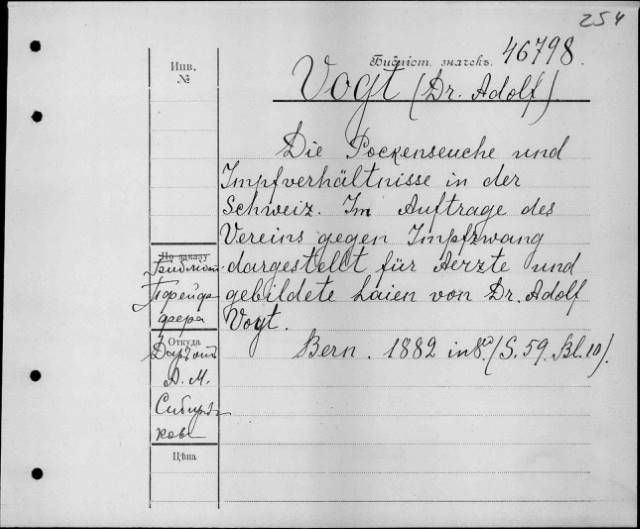 254
Инв.
№
Библіот. значекъ. 46798.
Vogt (Dr. Adolf).
Die Pockenseuche und
Impfverhältnisse in der
Schweiz. Im Auftrage des
Vereins gegen Impfzwang
dargestellt für Aerzte und
gebildete Laien von Dr. Adolf
Vogt.
Bern. 1882 in 8º. (S. 59. Bl. 10).
По заказу
Пфейф
фера
Откуда
Даръ отъ
А. М.
Сибиря
кова
Цѣна